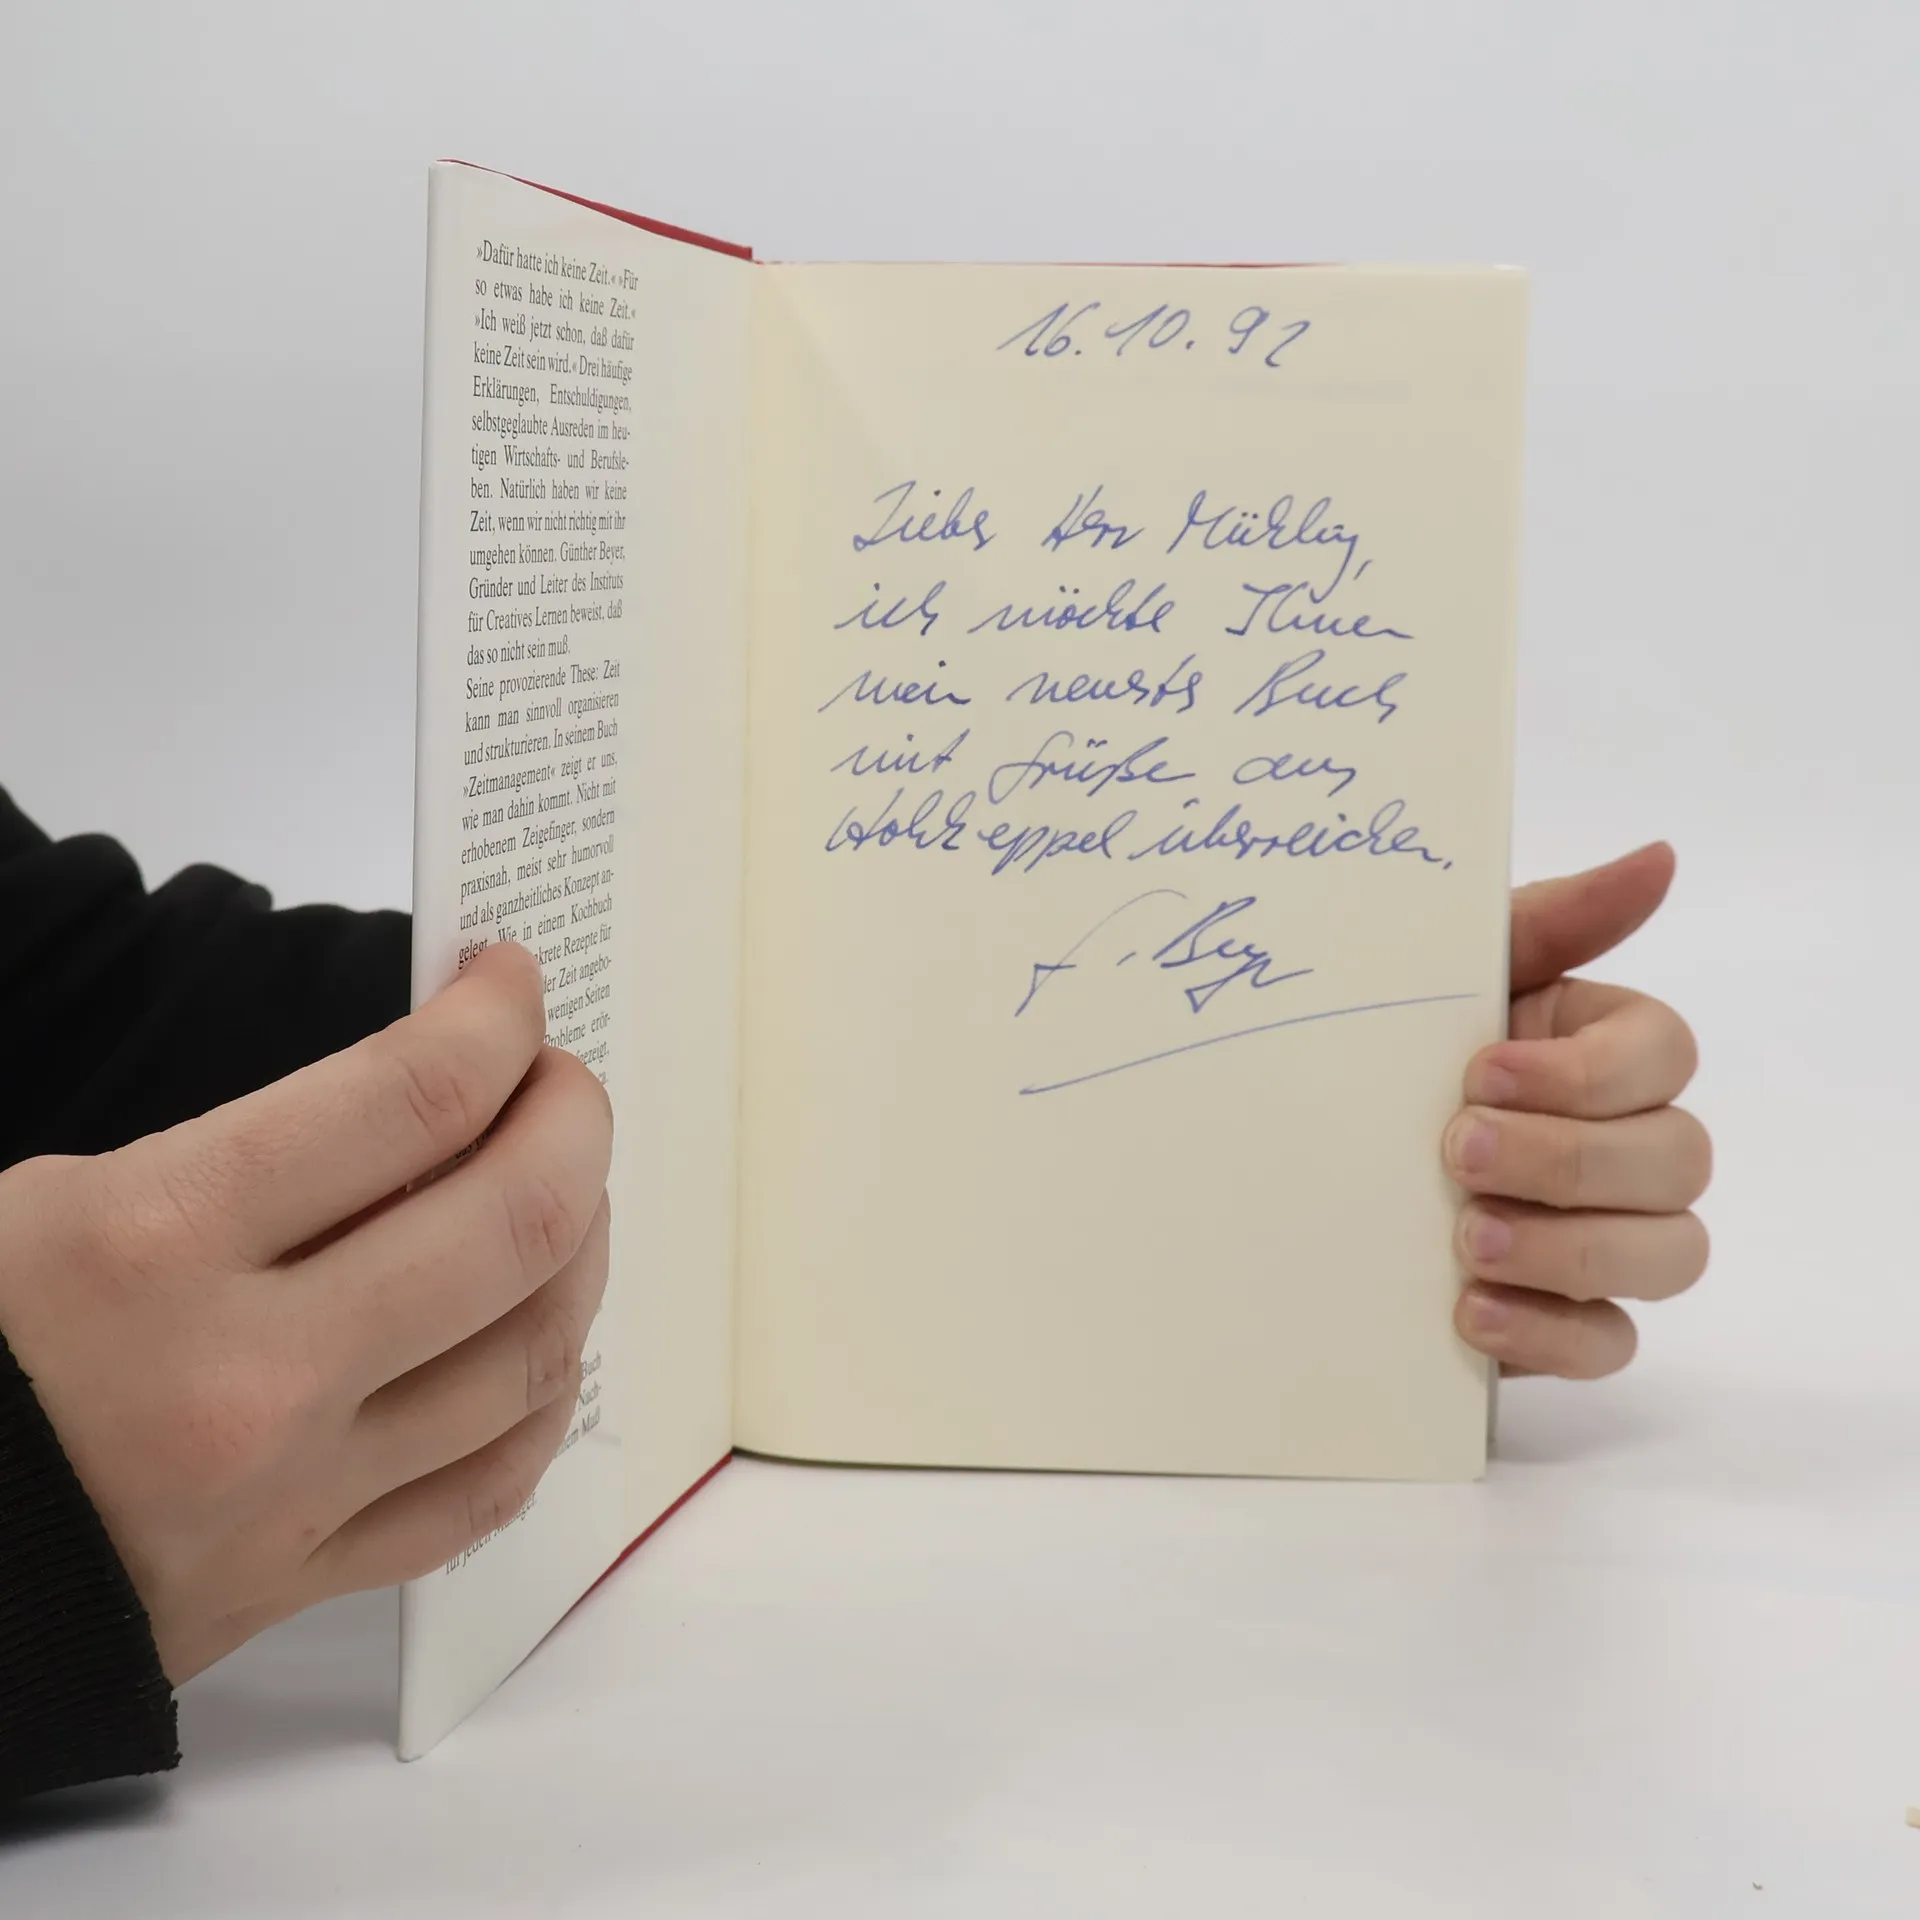 »Dafür hatte ich keine Zeit.« »Für
so etwas habe ich keine Zeit.«
»Ich weiß jetzt schon, daß dafür
keine Zeit sein wird.« Drei häufige
Erklärungen, Entschuldigungen,
selbstgeglaubte Ausreden im heu-
tigen Wirtschafts- und Berufsle-
ben. Natürlich haben wir keine
Zeit, wenn wir nicht richtig mit ihr
umgehen können. Günther Beyer,
Gründer und Leiter des Instituts
für Creatives Lernen beweist, daß
das so nicht sein muß.
Seine provozierende These: Zeit
kann man sinnvoll organisieren
und strukturieren. In seinem Buch
»Zeitmanagement« zeigt er uns,
wie man dahin kommt. Nicht mit
erhobenem Zeigefinger, sondern
praxisnah, meist sehr humorvoll
und als ganzheitliches Konzept an-
gelegt. Wie in einem Kochbuch
Rezepte für
der Zeit angebo-
wenigen Seiten
Probleme erör-
Buch
Nach-
Muß
für jeden Manager.
16.10.92
Lieber Herr Mühling,
ich möchte Ihnen
mein neustes Buch
mit Grüße aus
Hohkeppel überreichen.
G. Beyer